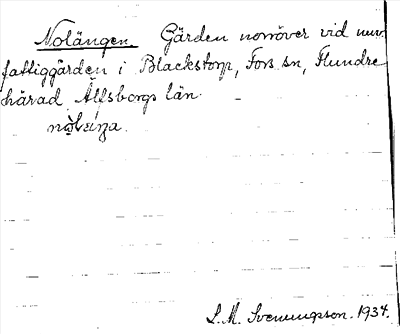 Nolängen. Gärden norröver vid nuv.
fattiggården i Blackstorp, Fors sn, Flundre
härad Älfsborgs län.
L. M. Svenungsson. 1934.